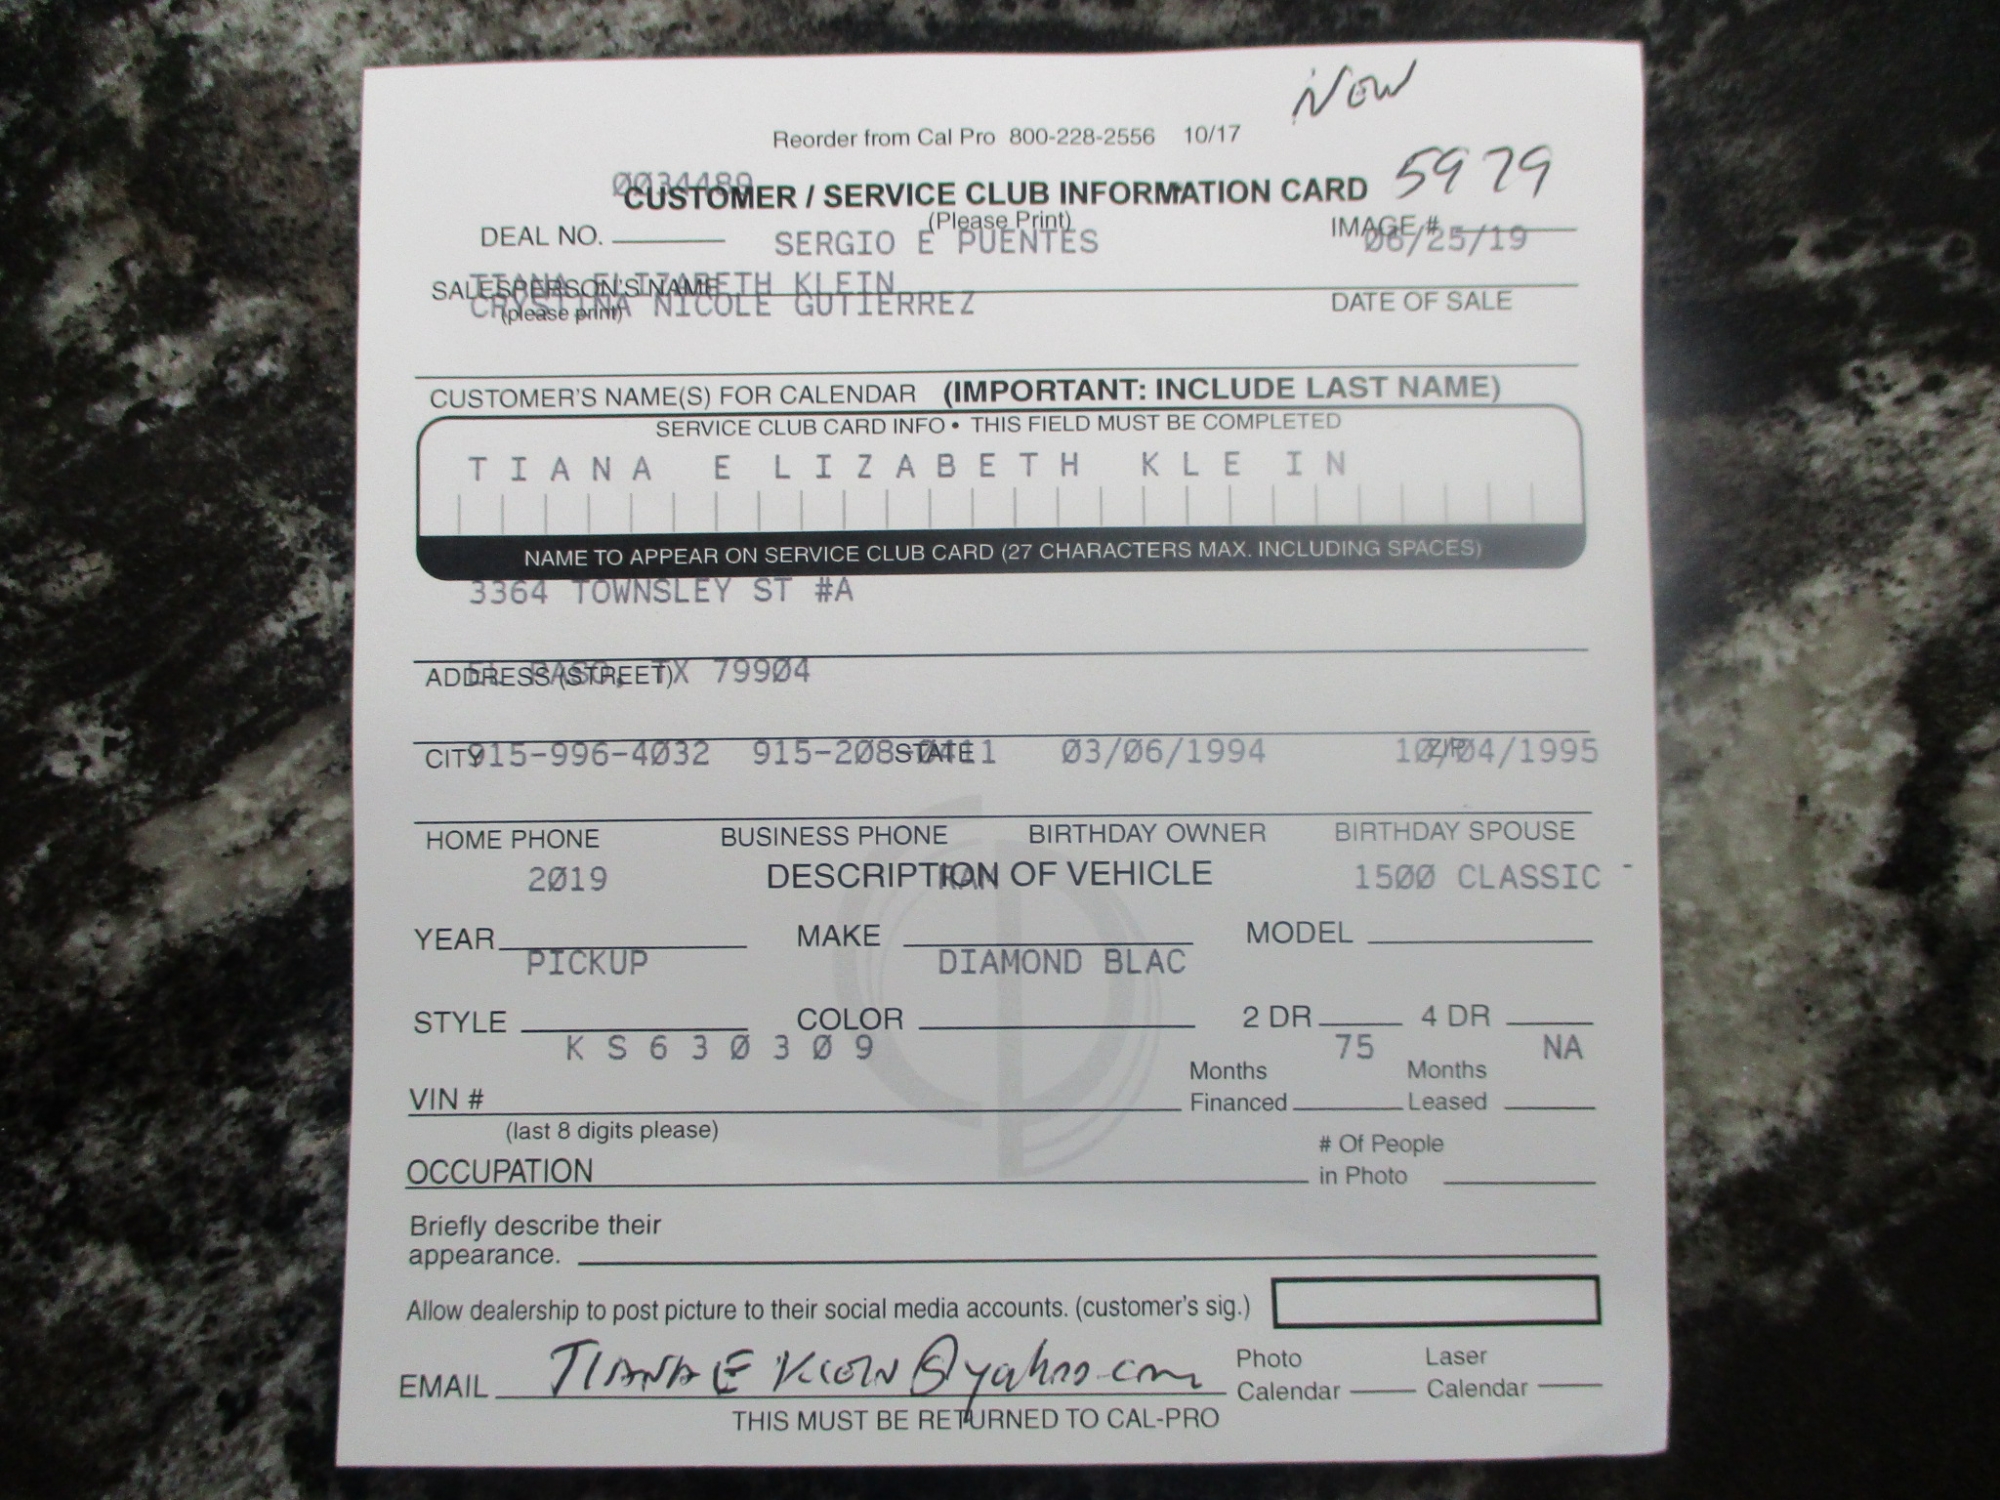 NEW
Reorder from Cal Pro 800-228-2556 10/17
0034489
CUSTOMER / SERVICE CLUB INFORMATION CARD 5979
(Please Print)
DEAL NO. SERGIO E PUENTES IMAGE # 06/25/19
TIANA ELIZABETH KLEIN
SALESPERSON'S NAME DATE OF SALE
CRYSTINA NICOLE GUTIERREZ
(please print)
CUSTOMER'S NAME(S) FOR CALENDAR (IMPORTANT: INCLUDE LAST NAME)
SERVICE CLUB CARD INFO • THIS FIELD MUST BE COMPLETED
TIANA ELIZABETH KLEIN
NAME TO APPEAR ON SERVICE CLUB CARD (27 CHARACTERS MAX. INCLUDING SPACES)
3364 TOWNSLEY ST #A
EL PASO, TX 79904
ADDRESS (STREET)
915-996-4032 915-208-0411 03/06/1994 10/04/1995
CITY STATE ZIP
HOME PHONE BUSINESS PHONE BIRTHDAY OWNER BIRTHDAY SPOUSE
DESCRIPTION OF VEHICLE
2019 RAM 1500 CLASSIC -
YEAR MAKE MODEL
PICKUP DIAMOND BLAC
STYLE COLOR 2 DR 4 DR
KS630309 75 NA
VIN # Months Financed Months Leased
(last 8 digits please)
OCCUPATION # Of People in Photo
Briefly describe their
appearance.
Allow dealership to post picture to their social media accounts. (customer's sig.)
EMAIL TIANAEKLEIN@yahoo.com Photo Calendar Laser Calendar
THIS MUST BE RETURNED TO CAL-PRO